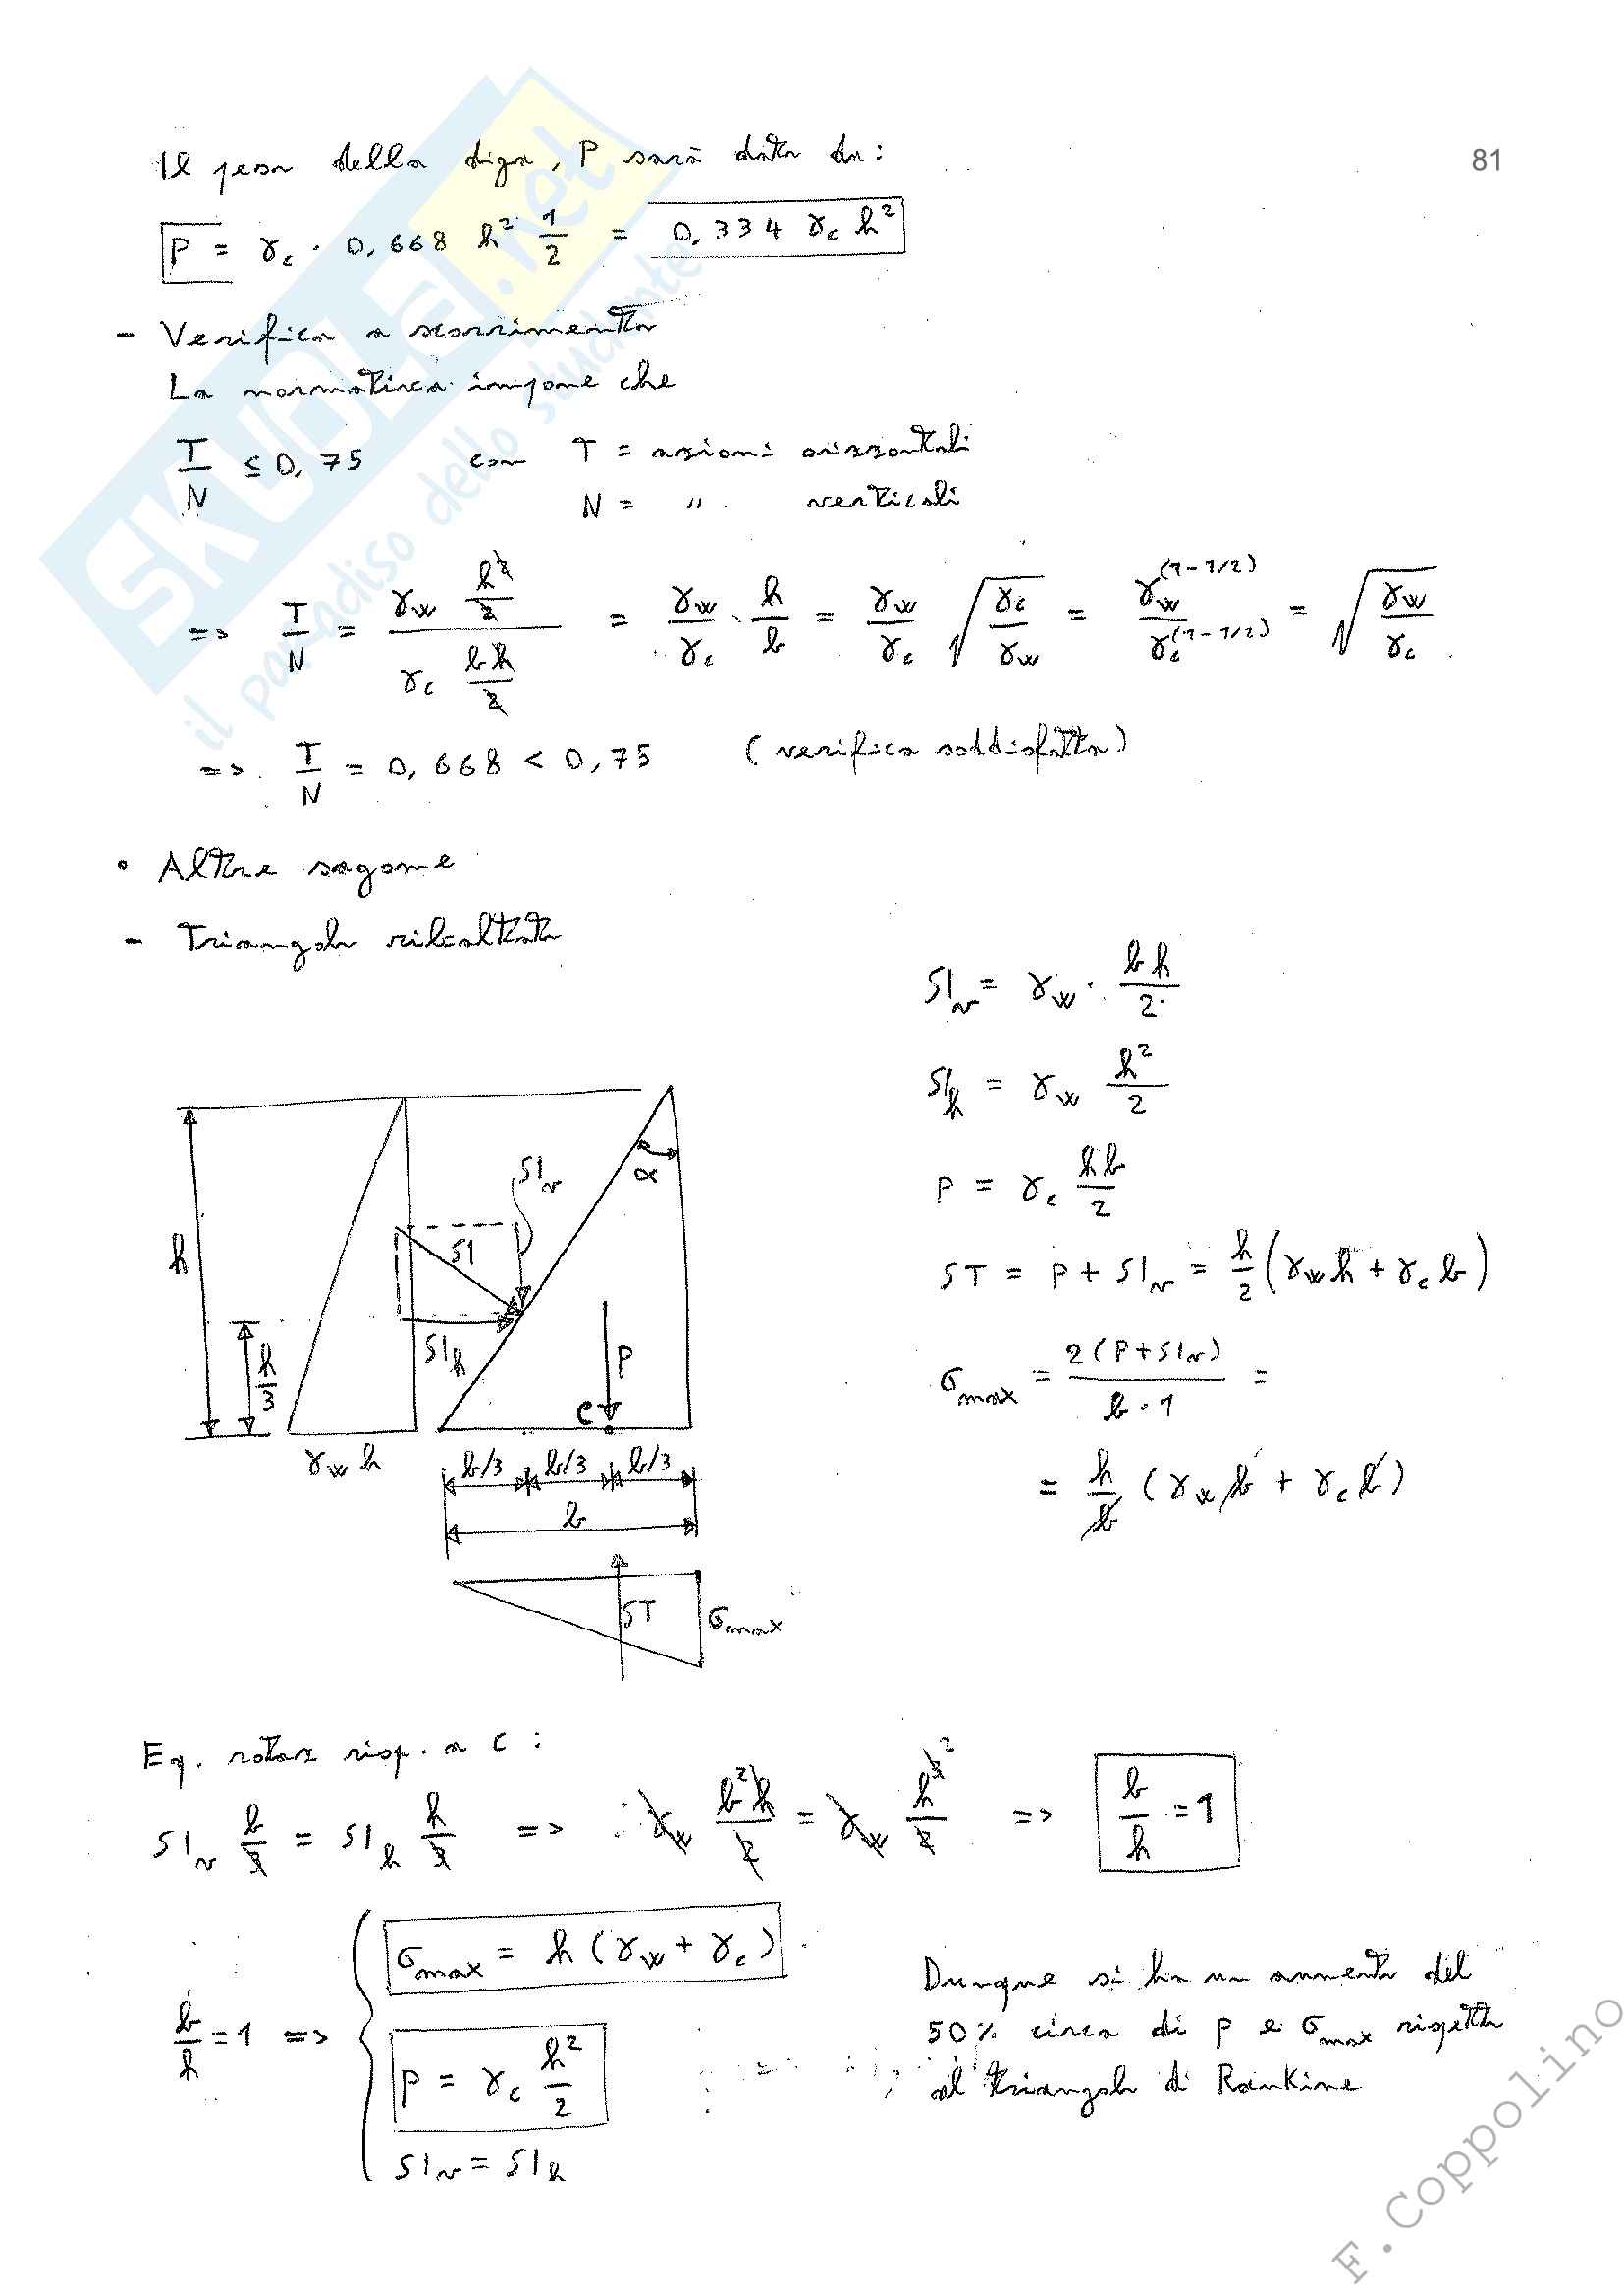 81
Il peso della diga, P sarà dato da:
P = γc · 0,668 h² 1/2 = 0,334 γc h²
- Verifica a scorrimento
La normativa impone che
T/N ≤ 0,75 con T = azioni orizzontali
N = " verticali
=> T/N = (γw h²/2) / (γc bh/2) = γw/γc · h/b = γw/γc √(γc/γw) = γw^(1-1/2) / γc^(1-1/2) = √(γw/γc)
=> T/N = 0,668 < 0,75 (verifica soddisfatta)
• Altre sagome
- Triangolo ribaltato
S1v = γw · bh/2
S1h = γw h²/2
P = γc hb/2
ST = P + S1v = h/2 (γw h + γc b)
σmax = 2(P+S1v) / b·1 =
= h/b (γw b + γc b)
h
h/3
γw h
S1
S1v
S1h
α
P
C
b/3 b/3 b/3
b
ST
σmax
Eq. rotaz risp. a C :
S1v b/3 = S1h h/3 => γw b²h/2 = γw h³/2 => b/h = 1
b/h = 1 => σmax = h (γw + γc)
P = γc h²/2
S1v = S1h
Dunque si ha un aumento del
50% circa di P e σmax rispetto
al triangolo di Rankine
SKUOLA.net
il paradiso dello studente
F.Coppolino